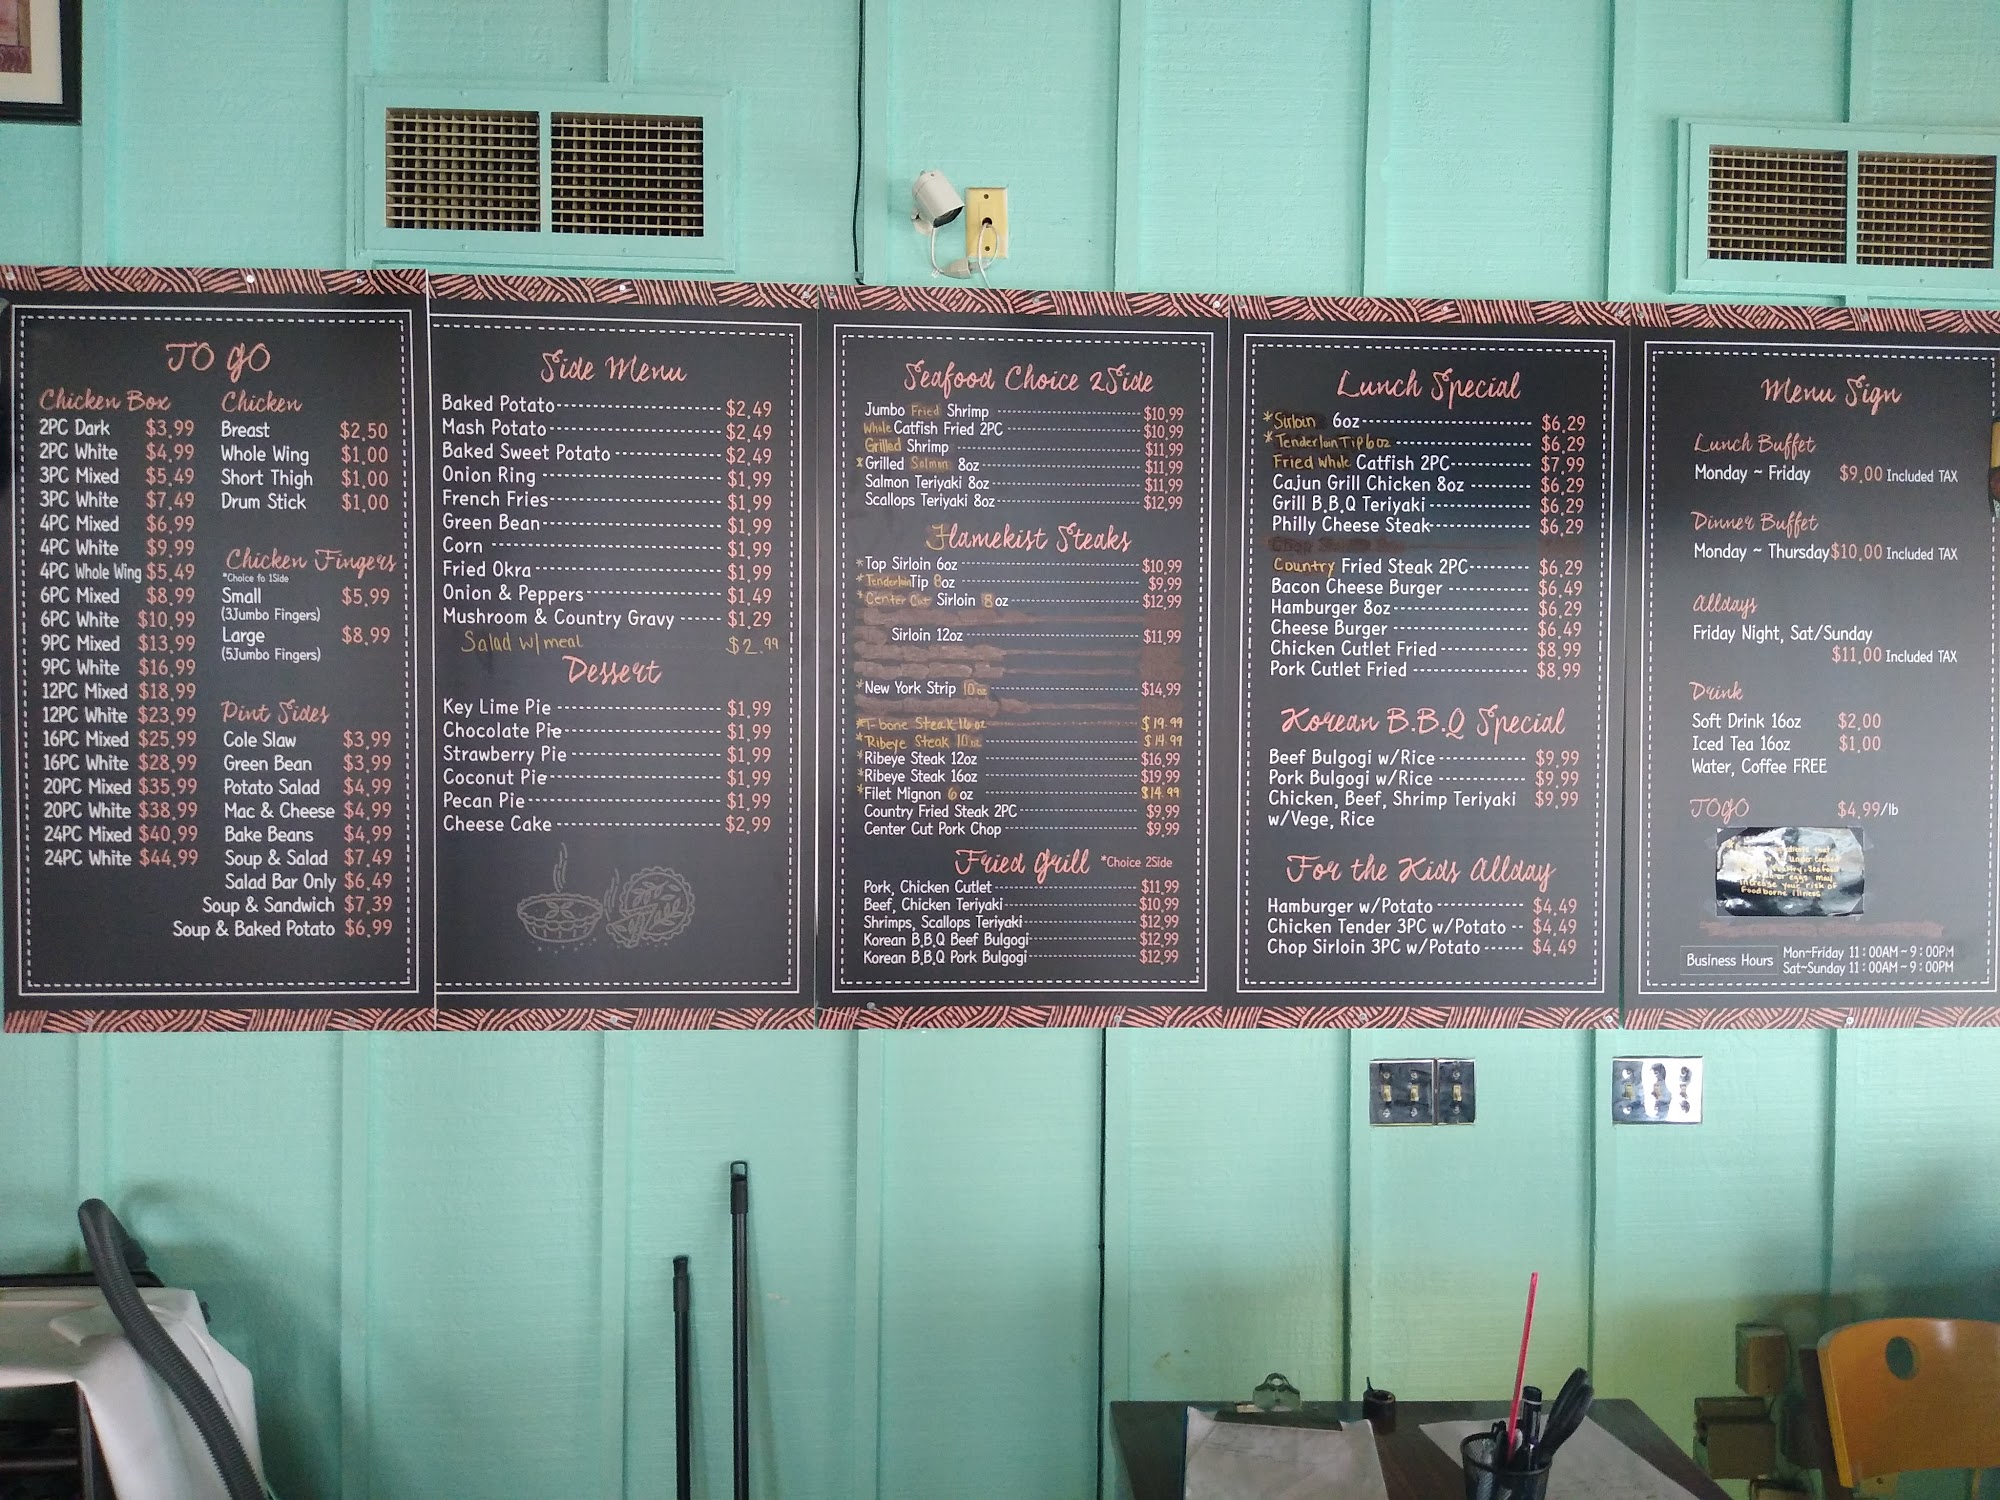 TO GO
Chicken Box
2PC Dark $3.99
2PC White $4.99
3PC Mixed $5.49
3PC White $7.49
4PC Mixed $6.99
4PC White $9.99
4PC Whole Wing $5.49
6PC Mixed $8.99
6PC White $10.99
9PC Mixed $13.99
9PC White $16.99
12PC Mixed $18.99
12PC White $23.99
16PC Mixed $25.99
16PC White $28.99
20PC Mixed $35.99
20PC White $38.99
24PC Mixed $40.99
24PC White $44.99
Chicken
Breast $2.50
Whole Wing $1.00
Short Thigh $1.00
Drum Stick $1.00
Chicken Fingers
*Choice fo 1Side
Small $5.99
(3Jumbo Fingers)
Large $8.99
(5Jumbo Fingers)
Pint Sides
Cole Slaw $3.99
Green Bean $3.99
Potato Salad $4.99
Mac & Cheese $4.99
Bake Beans $4.99
Soup & Salad $7.49
Salad Bar Only $6.49
Soup & Sandwich $7.39
Soup & Baked Potato $6.99
Side Menu
Baked Potato $2.49
Mash Potato $2.49
Baked Sweet Potato $2.49
Onion Ring $1.99
French Fries $1.99
Green Bean $1.99
Corn $1.99
Fried Okra $1.99
Onion & Peppers $1.49
Mushroom & Country Gravy $1.29
Salad w/meal $2.99
Dessert
Key Lime Pie $1.99
Chocolate Pie $1.99
Strawberry Pie $1.99
Coconut Pie $1.99
Pecan Pie $1.99
Cheese Cake $2.99
Seafood Choice 2Side
Jumbo Fried Shrimp $10.99
Whole Catfish Fried 2PC $10.99
Grilled Shrimp $11.99
*Grilled Salmon 8oz $11.99
Salmon Teriyaki 8oz $11.99
Scallops Teriyaki 8oz $12.99
Flamekist Steaks
*Top Sirloin 6oz $10.99
*Tenderloin Tip 8oz $9.99
*Center Cut Sirloin 8oz $12.99
Sirloin 12oz $11.99
*New York Strip 10oz $14.99
*T-bone Steak 16oz $19.99
*Ribeye Steak 10oz $14.99
*Ribeye Steak 12oz $16.99
*Ribeye Steak 16oz $19.99
*Filet Mignon 6oz $14.99
Country Fried Steak 2PC $9.99
Center Cut Pork Chop $9.99
Fried Grill *Choice 2Side
Pork, Chicken Cutlet $11.99
Beef, Chicken Teriyaki $10.99
Shrimps, Scallops Teriyaki $12.99
Korean B.B.Q Beef Bulgogi $12.99
Korean B.B.Q Pork Bulgogi $12.99
Lunch Special
*Sirloin 6oz $6.29
*Tenderloin Tip 6oz $6.29
Fried Whole Catfish 2PC $7.99
Cajun Grill Chicken 8oz $6.29
Grill B.B.Q Teriyaki $6.29
Philly Cheese Steak $6.29
Country Fried Steak 2PC $6.29
Bacon Cheese Burger $6.49
Hamburger 8oz $6.29
Cheese Burger $6.49
Chicken Cutlet Fried $8.99
Pork Cutlet Fried $8.99
Korean B.B.Q Special
Beef Bulgogi w/Rice $9.99
Pork Bulgogi w/Rice $9.99
Chicken, Beef, Shrimp Teriyaki $9.99
w/Vege, Rice
For the Kids Allday
Hamburger w/Potato $4.49
Chicken Tender 3PC w/Potato $4.49
Chop Sirloin 3PC w/Potato $4.49
Menu Sign
Lunch Buffet
Monday ~ Friday $9.00 Included TAX
Dinner Buffet
Monday ~ Thursday $10.00 Included TAX
Alldays
Friday Night, Sat/Sunday
$11.00 Included TAX
Drink
Soft Drink 16oz $2.00
Iced Tea 16oz $1.00
Water, Coffee FREE
TOGO $4.99/lb
Under
Seafood
eggs may
increase your risk of
foodborne illness
Business Hours
Mon~Friday 11:00AM ~ 9:00PM
Sat~Sunday 11:00AM ~ 9:00PM